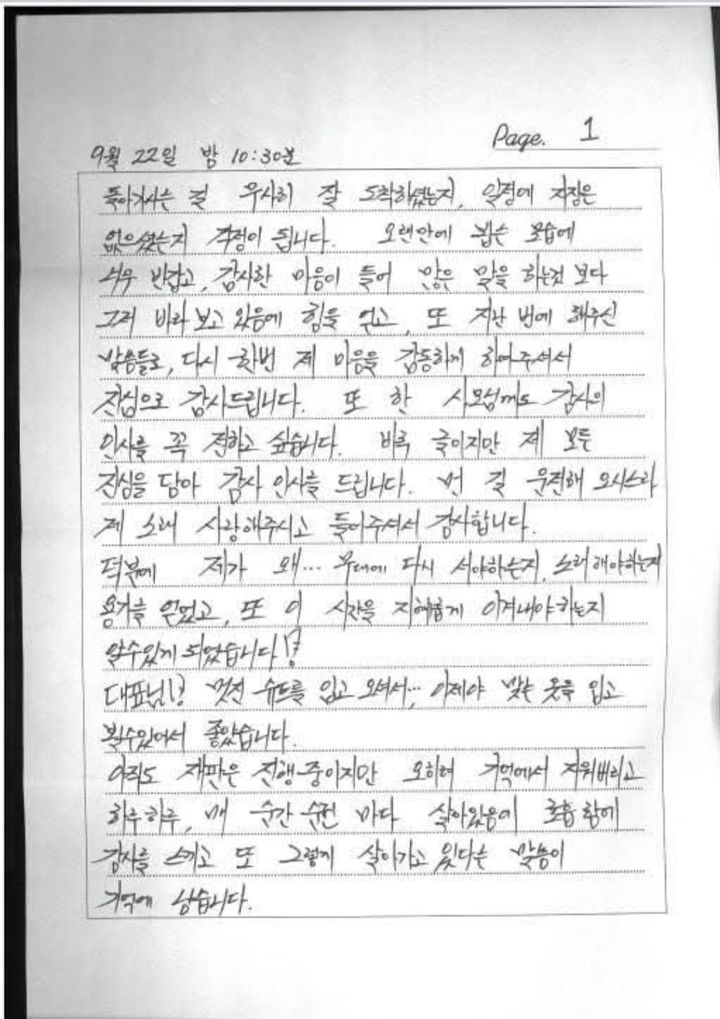 Page. 1
9월 22일 밤 10:30분
돌아가시는 길 무사히 잘 도착하셨는지, 일정에 지장은
없으셨는지 걱정이 됩니다. 오랜만에 뵙는 모습에
너무 반갑고, 감사한 마음이 들어 많은 말을 하는것 보다
그저 바라 보고 있음에 힘을 얻고, 또 지난 번에 해주신
말씀들로, 다시 한번 제 마음을 감동하게 하여주셔서
진심으로 감사드립니다. 또 한 사모님께도 감사의
인사를 꼭 전하고 싶습니다. 비록 글이지만 제 모든
진심을 담아 감사 인사를 드립니다. 먼 길 운전해 오시느라
제 노래 사랑해주시고 들어주셔서 감사합니다.
덕분에 제가 왜... 무대에 다시 서야하는지, 노래해야하는지
용기를 얻었고, 또 이 시간을 지혜롭게 이겨내야하는지
알수있게 되었습니다!
대표님! 멋진 슈트를 입고 오셔서..., 이제야 맞는 옷을 입고
뵐수있어서 좋았습니다.
아직도 재판은 진행중이지만 오히려 기억에서 지워버리고
하루하루, 매 순간 순간 마다 살아있음에 호흡함에
감사를 느끼고 또 그렇게 살아가고 있다는 말씀이
기억에 남습니다.